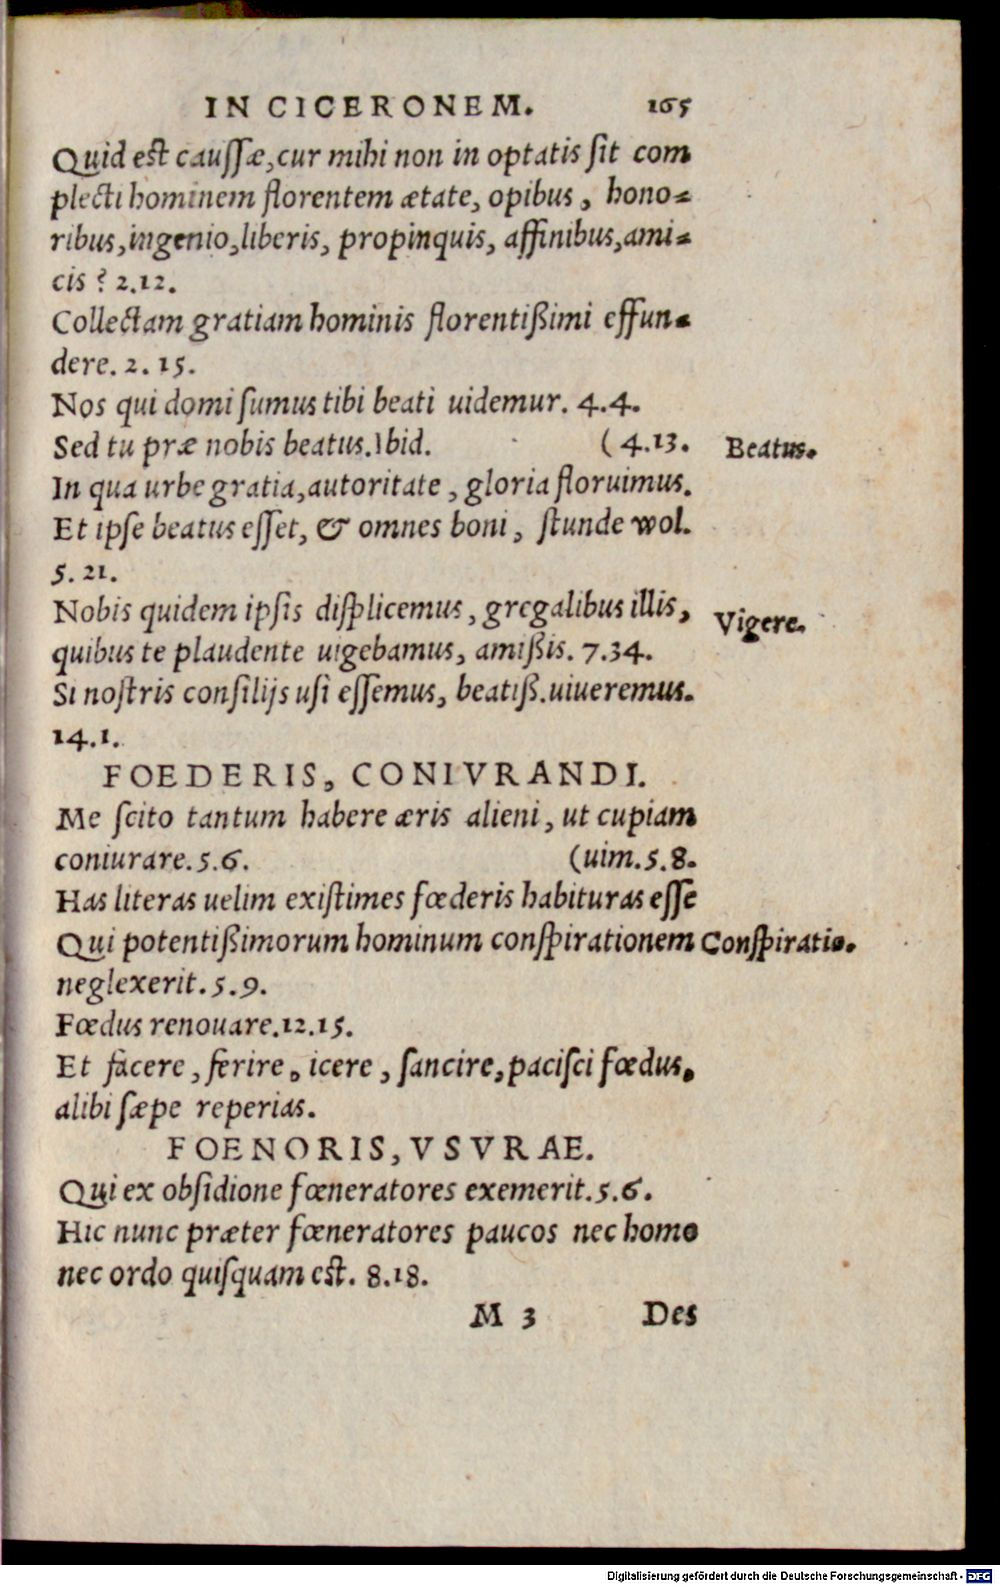 IN CICERONEM. 165
Quid est caussæ, cur mihi non in optatis sit com
plecti hominem florentem ætate, opibus, hono-
ribus, ingenio, liberis, propinquis, affinibus, ami-
cis? 2.12.
Collectam gratiam hominis florentißimi effun-
dere. 2. 15.
Nos qui domi sumus tibi beati uidemur. 4.4.
Sed tu præ nobis beatus. Ibid. (4.13. Beatus.
In qua urbe gratia, autoritate, gloria floruimus.
Et ipse beatus esset, & omnes boni, stunde wol.
5. 21.
Nobis quidem ipsis displicemus, gregalibus illis, Vigere.
quibus te plaudente uigebamus, amißis. 7.34.
Si nostris consilijs usi essemus, beatiß. uiueremus.
14.1.
FOEDERIS, CONIVRANDI.
Me scito tantum habere æris alieni, ut cupiam
coniurare. 5.6. (uim. 5.8.
Has literas uelim existimes fœderis habituras esse
Qui potentißimorum hominum conspirationem Conspiratio.
neglexerit. 5.9.
Fœdus renouare. 12.15.
Et facere, ferire, icere, sancire, pacisci fœdus,
alibi sæpe reperias.
FOENORIS, VSVRAE.
Qui ex obsidione fœneratores exemerit. 5.6.
Hic nunc præter fœneratores paucos nec homo
nec ordo quisquam est. 8.18.
M 3 Des
Digitalisierung gefördert durch die Deutsche Forschungsgemeinschaft - DFG